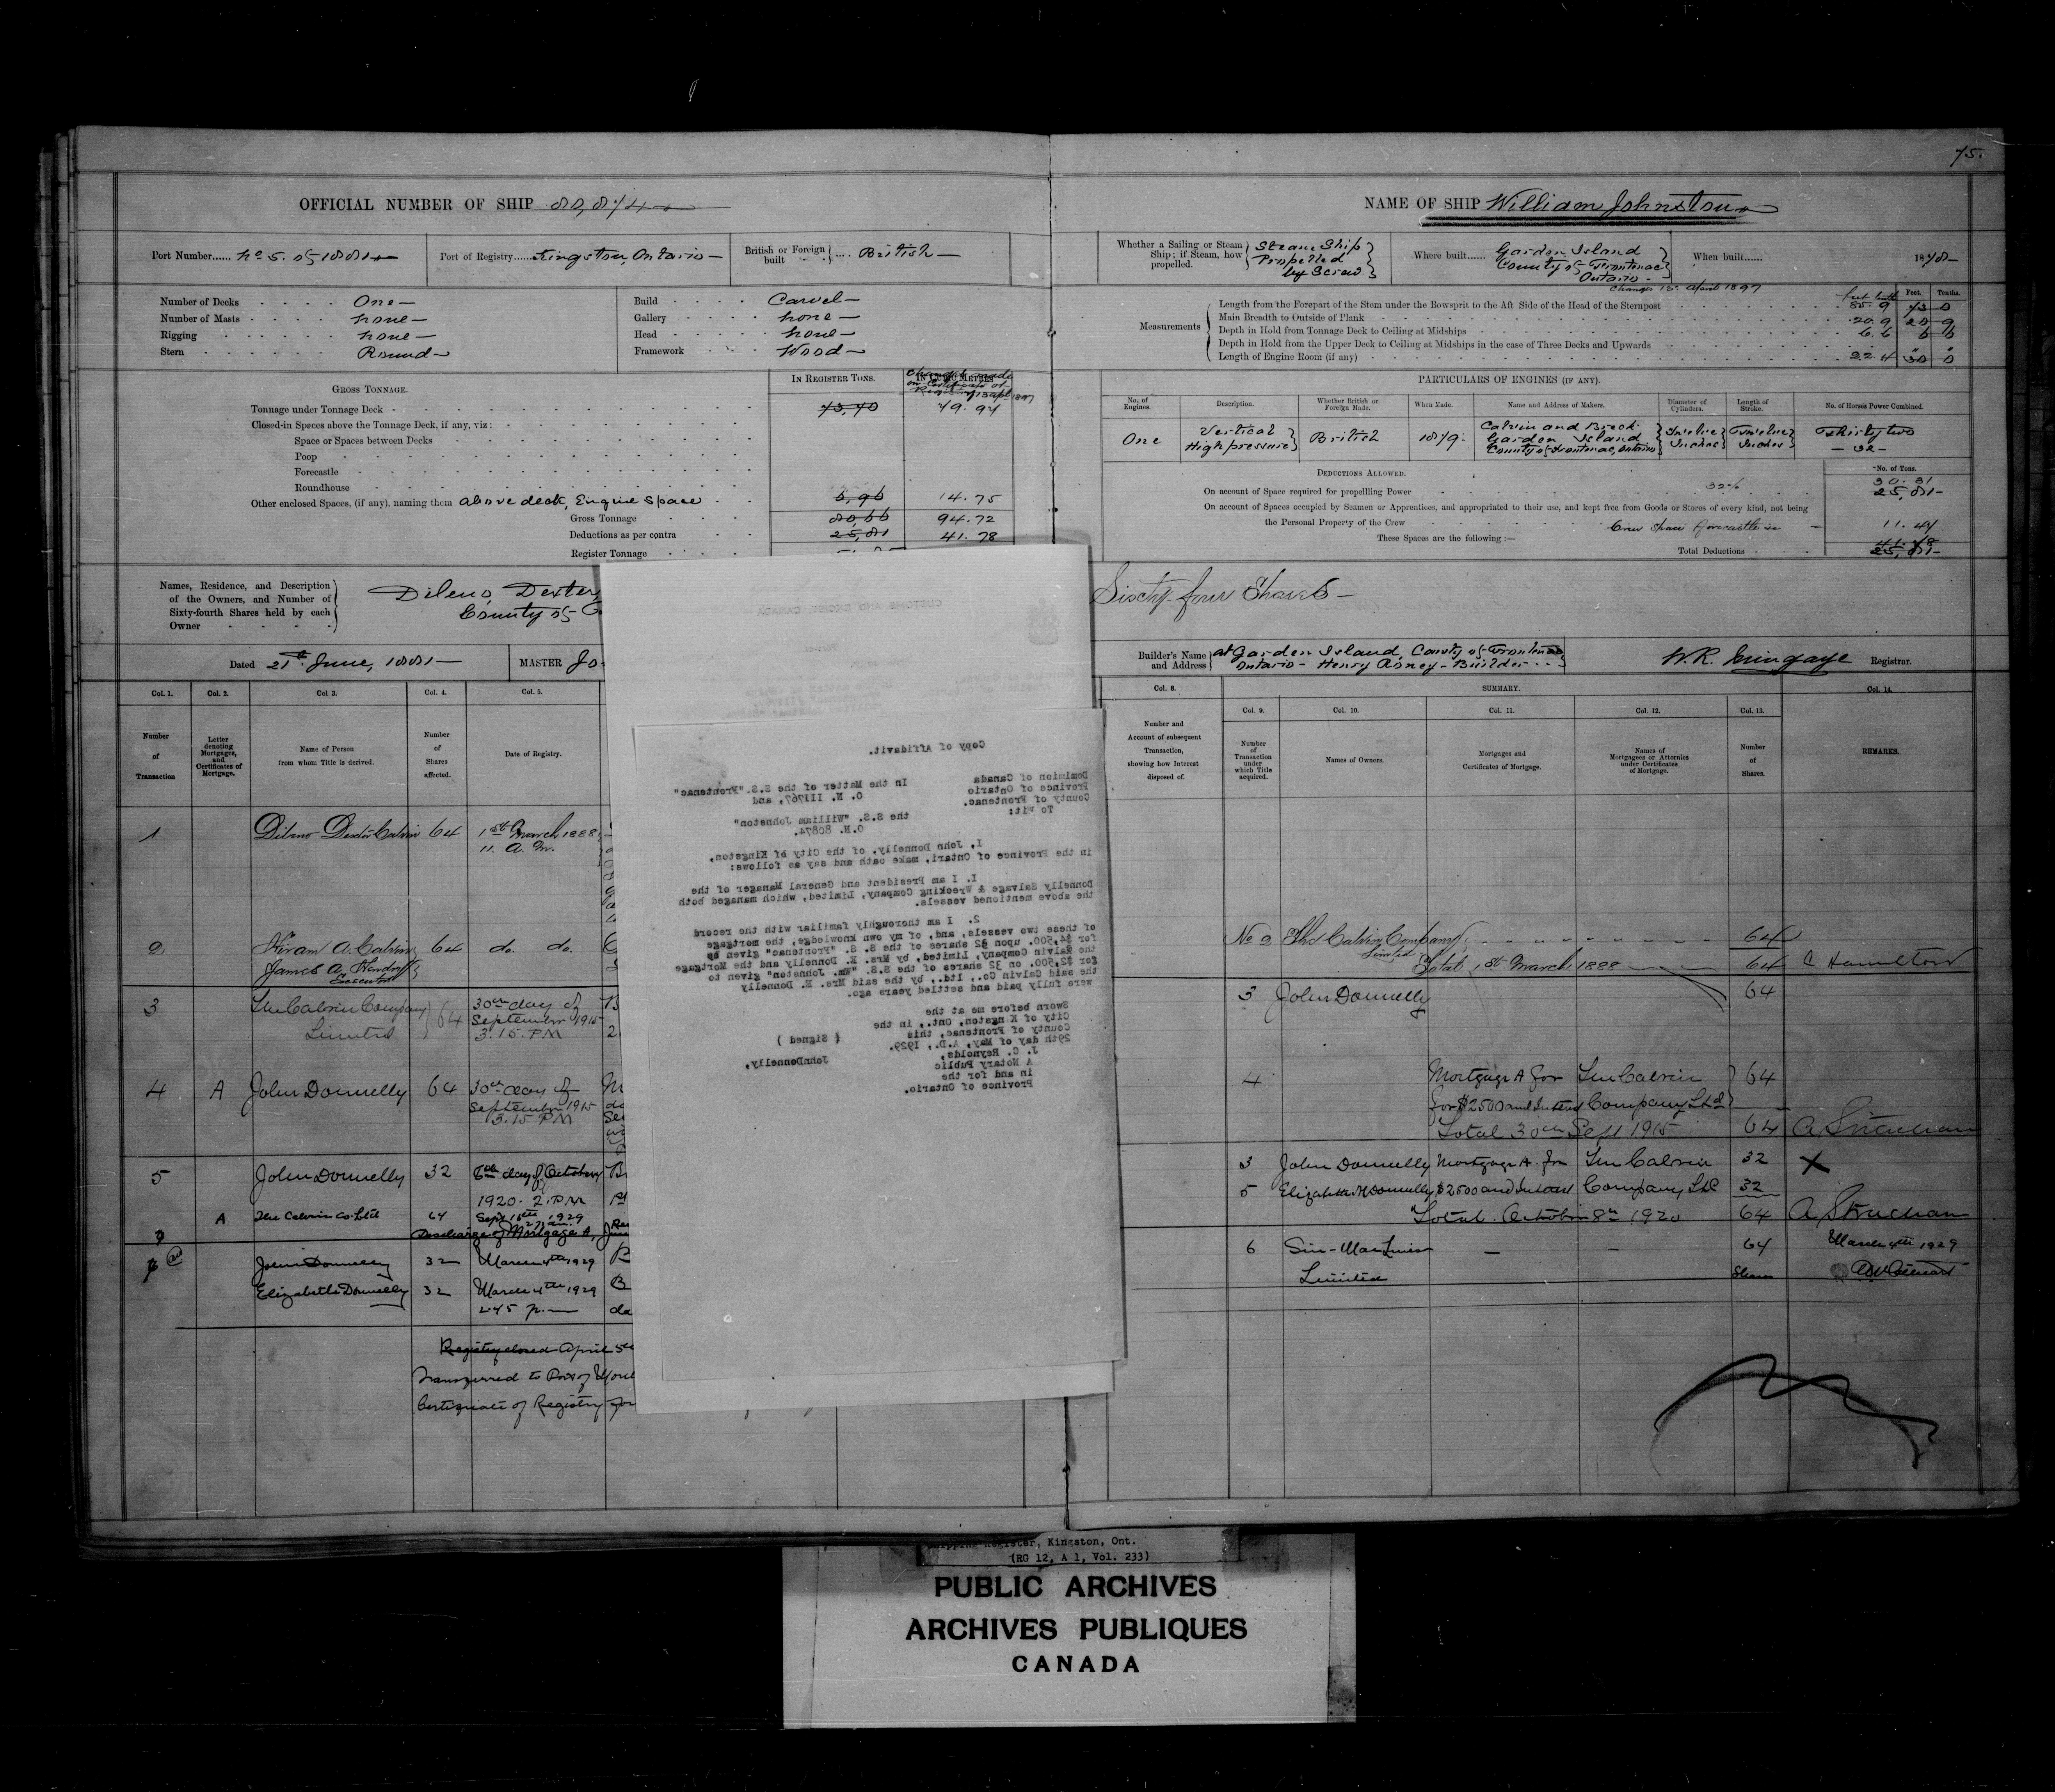 75.
OFFICIAL NUMBER OF SHIP 80,874
NAME OF SHIP William Johnston
Port Number...... No 5. of 1881
Port of Registry...... Kingston, Ontario
British or Foreign built .... British
Whether a Sailing or Steam Ship; if Steam, how propelled. Steam Ship Propelled by Screw
Where built...... Garden Island County of Frontenac Ontario
When built...... 1878
Number of Decks One
Number of Masts none
Rigging none
Stern Round
Build Carvel
Gallery none
Head none
Framework Wood
Changes 13 April 1897
feet tenths Feet. Tenths.
Measurements
Length from the Forepart of the Stem under the Bowsprit to the Aft Side of the Head of the Sternpost 85.9
Main Breadth to Outside of Plank 20.9 20 9
Depth in Hold from Tonnage Deck to Ceiling at Midships 6.6 6 6
Depth in Hold from the Upper Deck to Ceiling at Midships in the case of Three Decks and Upwards
Length of Engine Room (if any) 22.4 30 0
GROSS TONNAGE.
IN REGISTER TONS.
IN CUBIC METRES
Tonnage under Tonnage Deck 73,70 79.97
Closed-in Spaces above the Tonnage Deck, if any, viz:
Space or Spaces between Decks
Poop
Forecastle
Roundhouse
Other enclosed Spaces, (if any), naming them above deck, Engine Space 6,96 14.75
Gross Tonnage 80,66 94.72
Deductions as per contra 25,81 41.78
Register Tonnage
PARTICULARS OF ENGINES (IF ANY).
No. of Engines.
Description.
Whether British or Foreign Made.
When Made.
Name and Address of Makers.
Diameter of Cylinders.
Length of Stroke.
No. of Horses Power Combined.
One
Vertical High pressure
British
1879.
Calvin and Breck Garden Island County of Frontenac, Ontario
Twelve Inches
Twelve Inches
Thirty two
— 32 —
DEDUCTIONS ALLOWED.
No. of Tons.
On account of Space required for propelling Power 32% 30.31
25,81
On account of Spaces occupied by Seamen or Apprentices, and appropriated to their use, and kept free from Goods or Stores of every kind, not being
the Personal Property of the Crew Crew space forecastle 11.47
These Spaces are the following:—
Total Deductions 41.78
25,81
Names, Residence, and Description of the Owners, and Number of Sixty-fourth Shares held by each Owner
Dileno Dexter
County of
Sixty four Shares
Dated 21st June, 1881
MASTER Jo
Builder's Name and Address at Garden Island, County of Frontenac
Ontario - Henry Roney - Builder
W.R. Mingaye Registrar.
Col. 1.
Col. 2.
Col 3.
Col. 4.
Col. 5.
Number of Transaction
Letter denoting Mortgages, and Certificates of Mortgage.
Name of Person from whom Title is derived.
Number of Shares affected.
Date of Registry.
1 Dileno Dexter Calvin 64 1st March 1888
11. A.M.
2 Hiram A. Calvin 64 do. do.
James A.
Executors
3 The Calvin Company Limited 64 30th day of September 1915 3.15. P.M
4 A John Donnelly 64 30th day of September 1915 3.15 PM
5 John Donnelly 32 8th day of October
1920. 2. P.M
A The Calvin Co. Ltd 64 Sept 18th 1929
Discharge of Mortgage A,
John Donnelly 32 March 4th 1929
Elizabeth Donnelly 32 March 4th 1929
2.45 p.
Registry closed April 5th
Transferred to Port of
Certificate of Registry
CUSTOMS AND EXCISE CANADA
Copy of Affidavit.
Dominion of Canada
Province of Ontario
County of Frontenac.
To Wit:
In the Matter of the S.S."Frontenac"
O. N. 111767, and
the S.S. "William Johnston"
O.N. 80874.
I, John Donnelly, of the City of Kingston,
in the Province of Ontari, make oath and say as follows:
1. I am President and General Manager of the
Donnelly Salvage & Wrecking Company, Limited, which managed both
the above mentioned vessels.
2. I am thoroughly familiar with the record
of these two vessels, and, of my own knowledge, the mortgage
for $4,500. upon 32 shares of the S. S. "Frontenac" given by
the Calvin Company, Limited, by Mrs. E. Donnelly and the Mortgage
for $2,500. on 32 shares of the S.S. "Wm. Johnston" given to
the said Calvin Co., ltd., by the said Mrs. E. Donnelly
were fully paid and settled years ago.
Sworn before me at the
City of K ngston, Ont., in the
County of Frontenac, this
29th day of May, A.D., 1929.
( Signed )
J. C. Reynolds,
JohnDonnelly,
A Notary Public
in and for the
Province of Ontario.
Col. 8.
SUMMARY.
Col. 14.
Col. 9.
Col. 10.
Col. 11.
Col. 12.
Col. 13.
Number and Account of subsequent Transaction, showing how Interest disposed of.
Number of Transaction under which Title acquired.
Names of Owners.
Mortgages and Certificates of Mortgage.
Names of Mortgagees or Attornies under Certificates of Mortgage.
Number of Shares.
REMARKS.
No 2 The Calvin Company Limited 64
Total 1st March 1888 64 C. Hamilton
3 John Donnelly 64
4 Mortgage A for The Calvin 64
for $2500 and Interest Company Ltd
Total 30th Sept 1915 64 A Strachan
3 John Donnelly Mortgage A. for The Calvin 32 X
5 Elizabeth M Donnelly $2500 and Interest Company Ltd 32
Total October 8th 1920 64 A Strachan
6 Sin-Mac Lines Limited — — 64 Shares March 4th 1929
Shipping Register, Kingston, Ont.
(RG 12, A 1, Vol. 233)
PUBLIC ARCHIVES
ARCHIVES PUBLIQUES
CANADA